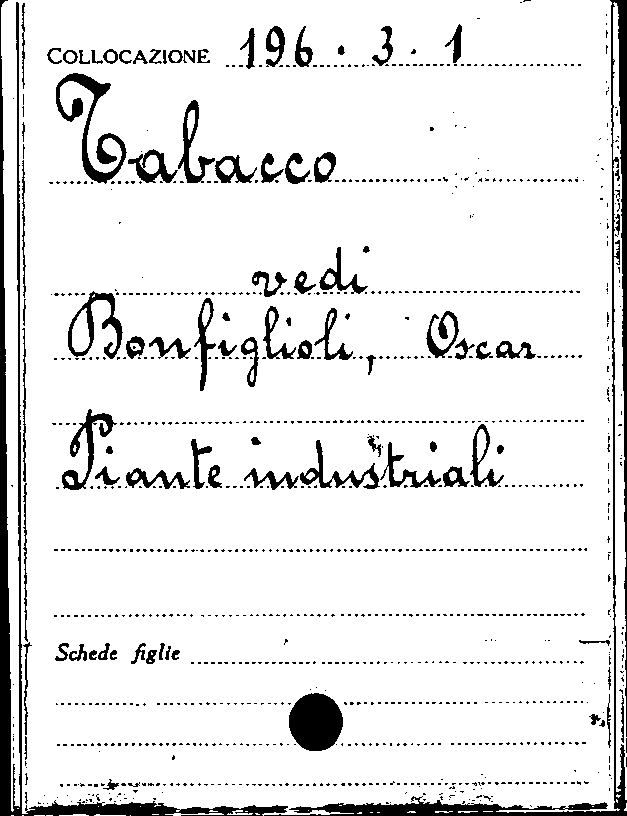 COLLOCAZIONE 196 . 3 . 1
Tabacco
vedi
Bonfiglioli, Oscar
Piante industriali
Schede figlie